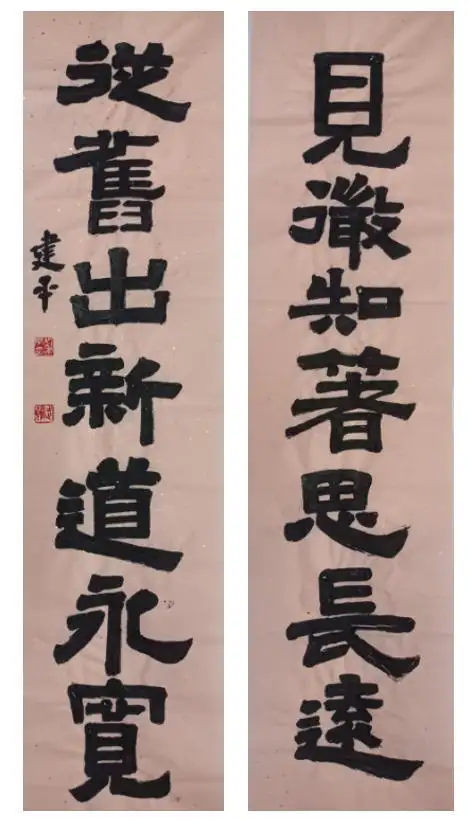 見微知著思長遠
從舊出新道永寬
建平